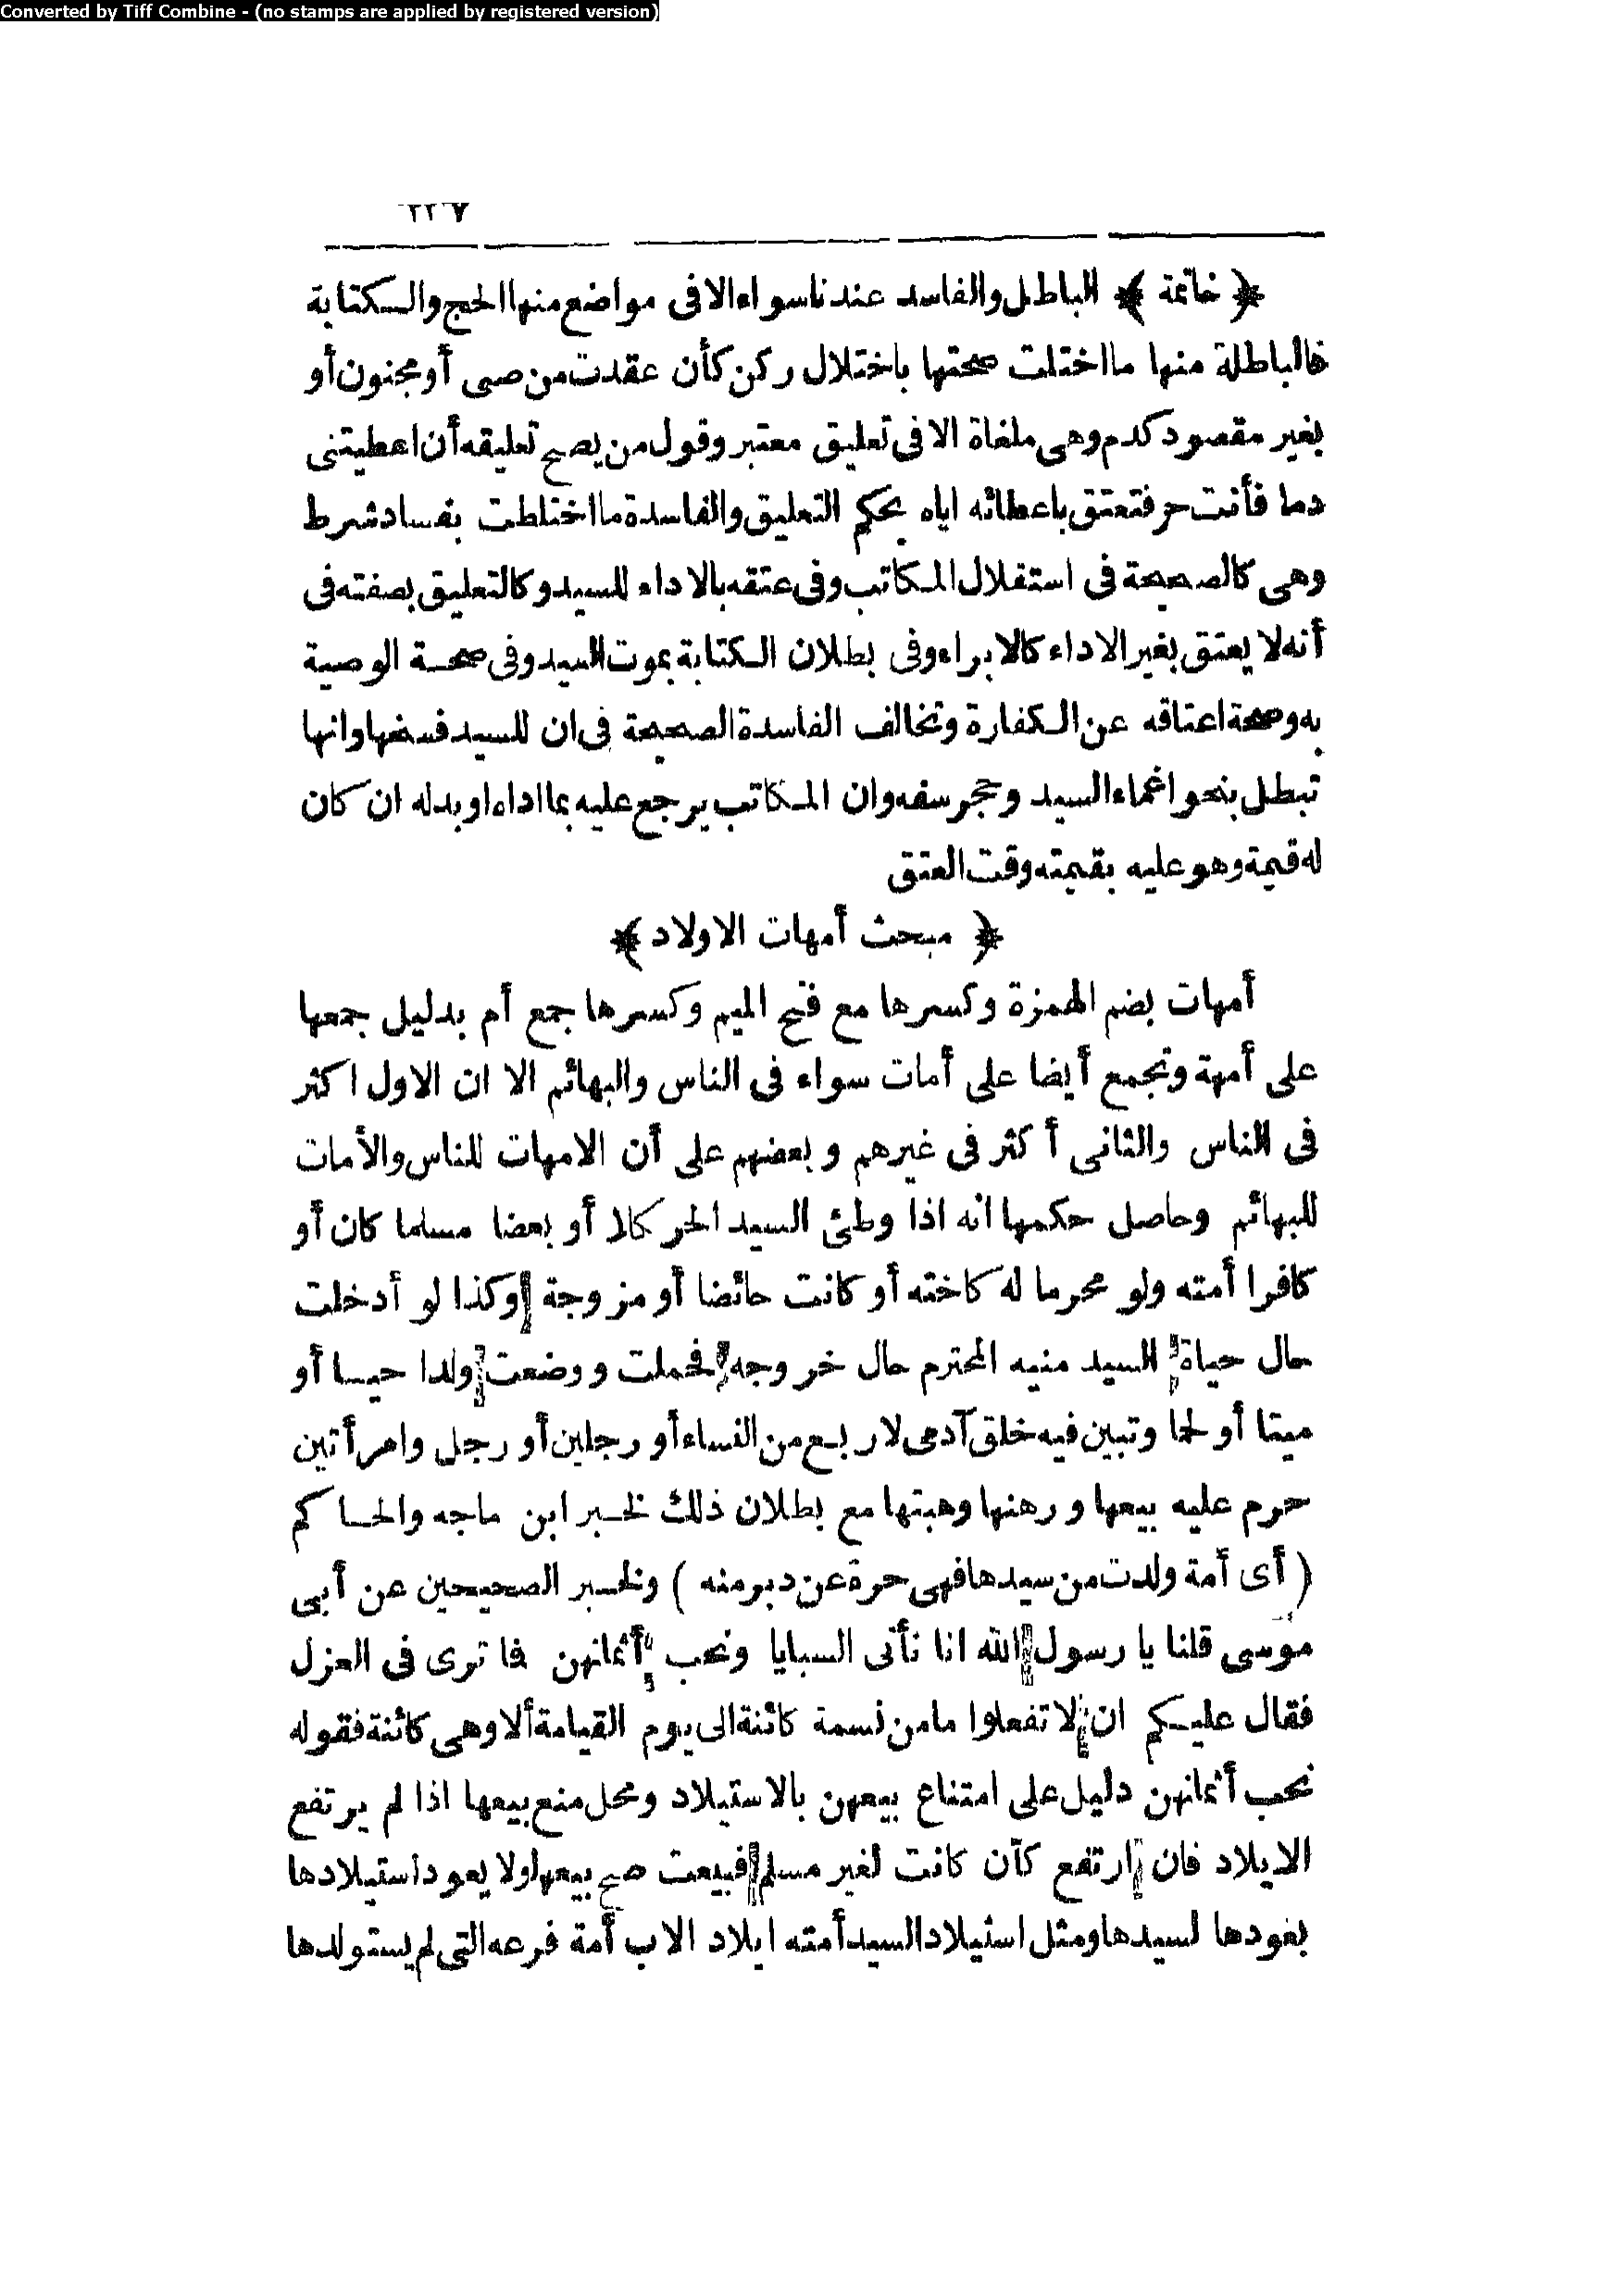 Converted by Tiff Combine - (no stamps are applied by registered version)
٢٢٧
﴿ خاتمة ﴾ الباطل والفاسد عندنا سواء الا فى مواضع منها الحج والكتابة
فالباطلة منها ما اختلت صحتها باختلال ركن كأن عقدت من صبى أو مجنون أو
بغير مقصود كدم وهى ملغاة الا فى تعليق معتبر وقول من يصح تعليقه أن اعطيتنى
دما فأنت حر فتعتق باعطائه اياه بحكم التعليق والفاسدة ما اختلطت بفساد شرط
وهى كالصحيحة فى استقلال المكاتب وفى عتقه بالاداء للسيد وكالتعليق بصفته فى
أنه لا يعتق بغير الاداء كالابراء وفى بطلان الكتابة بموت السيد وفى صحة الوصية
به وصحة اعتاقه عن الكفارة وتخالف الفاسدة الصحيحة فى ان للسيد فسخها وانها
تبطل بنحو اغماء السيد وحجر سفه وان المكاتب يرجع عليه بما اداه او بدله ان كان
له قيمة وهو عليه بقيمته وقت العتق
﴿ مبحث أمهات الاولاد ﴾
أمهات بضم الهمزة وكسرها مع فتح الميم وكسرها جمع أم بدليل جمعها
على أمهة وتجمع أيضا على أمات سواء فى الناس والبهائم الا ان الاول اكثر
فى الناس والثانى أكثر فى غيرهم وبعضهم على أن الامهات للناس والأمات
للبهائم وحاصل حكمها انه اذا وطئ السيد الحر كلا أو بعضا مسلما كان أو
كافرا أمته ولو محرما له كاخته أو كانت حائضا أو مزوجة وكذا لو أدخلت
حال حياة السيد منيه المحترم حال خروجه فحملت ووضعت ولدا حيا أو
ميتا أو لحما وتبين فيه خلق آدمى لاربع من النساء أو رجلين أو رجل وامرأتين
حرم عليه بيعها ورهنها وهبتها مع بطلان ذلك لخبر ابن ماجه والحاكم
( أى أمة ولدت من سيدها فهى حرة عن دبر منه ) ولخبر الصحيحين عن أبى
موسى قلنا يا رسول الله انا نأتى السبايا ونحب أثمانهن فما ترى فى العزل
فقال عليكم ان لا تفعلوا ما من نسمة كائنة الى يوم القيامة ألا وهى كائنة فقوله
نحب أثمانهن دليل على امتناع بيعهن بالاستيلاد ومحل منع بيعها اذا لم يرتفع
الايلاد فان ارتفع كأن كانت لغير مسلم فبيعت صح بيعها ولا يعود استيلادها
بعودها لسيدها ومثل استيلاد السيد أمته ايلاد الاب أمة فرعه التى لم يستولدها